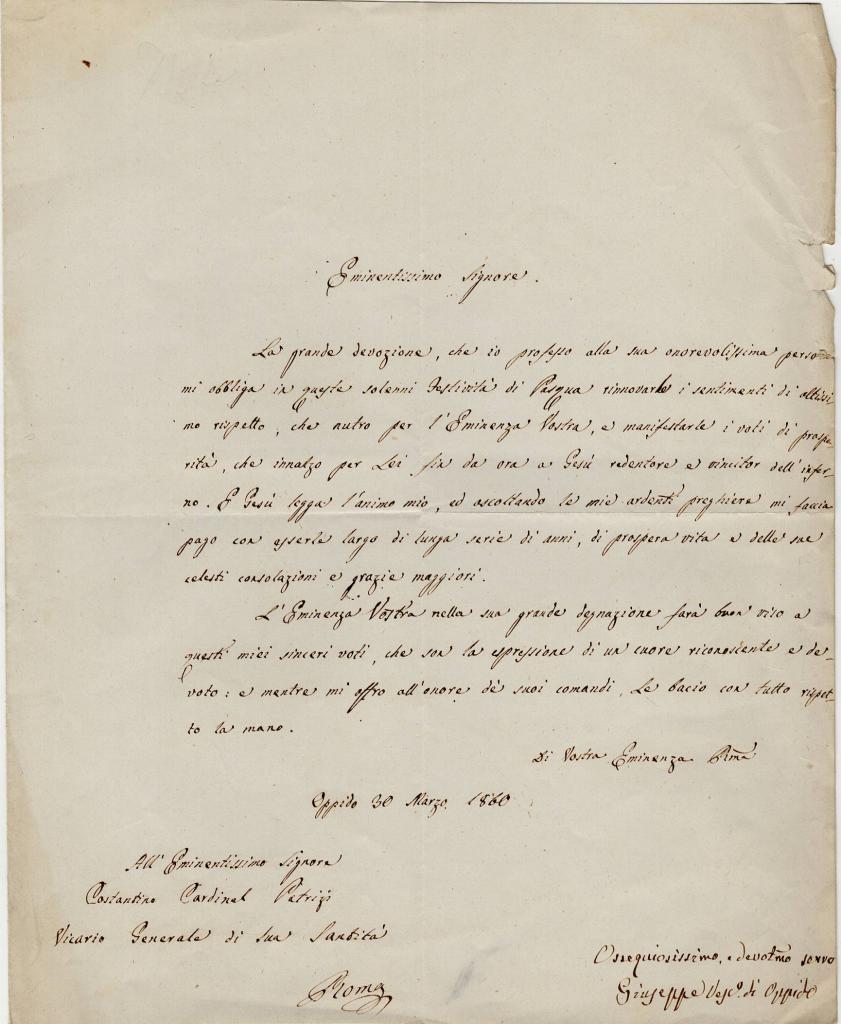 Eminentissimo Signore.
La grande devozione, che io professo alla sua onorevolissima persona
mi obbliga in queste solenni Festività di Pasqua rinnovarle i sentimenti di altissi
mo rispetto, che nutro per l'Eminenza Vostra, e manifestarle i voti di prospe-
rità, che innalzo per Lei fin da ora a Gesù redentore e vincitor dell'infer-
no. E Gesù legga l'animo mio, ed ascoltando le mie ardenti preghiere mi faccia
pago con esserle largo di lunga serie di anni, di prospera vita e delle sue
celesti consolazioni e grazie maggiori.
L'Eminenza Vostra nella sua grande degnazione farà buon viso a
questi miei sinceri voti, che son la espressione di un cuore riconoscente e de-
voto: e mentre mi offro all'onore dè suoi comandi, Le bacio con tutto rispet-
to la mano.
Di Vostra Eminenza Rma
Oppido 30 Marzo 1860
All'Eminentissimo Signore
Costantino Cardinal Patrizj
Vicario Generale di Sua Santità
Roma
Ossequiosissimo, e devotmo servo
Giuseppe Vesco. di Oppido